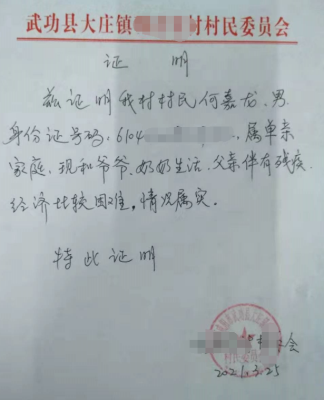 武功县大庄镇 村村民委员会
证 明
兹证明我村村民何嘉龙,男
身份证号码:6104 ,属单亲
家庭,现和爷爷、奶奶生活、父亲伴有残疾
经济比较困难,情况属实.
特此证明
会
2021.3.25